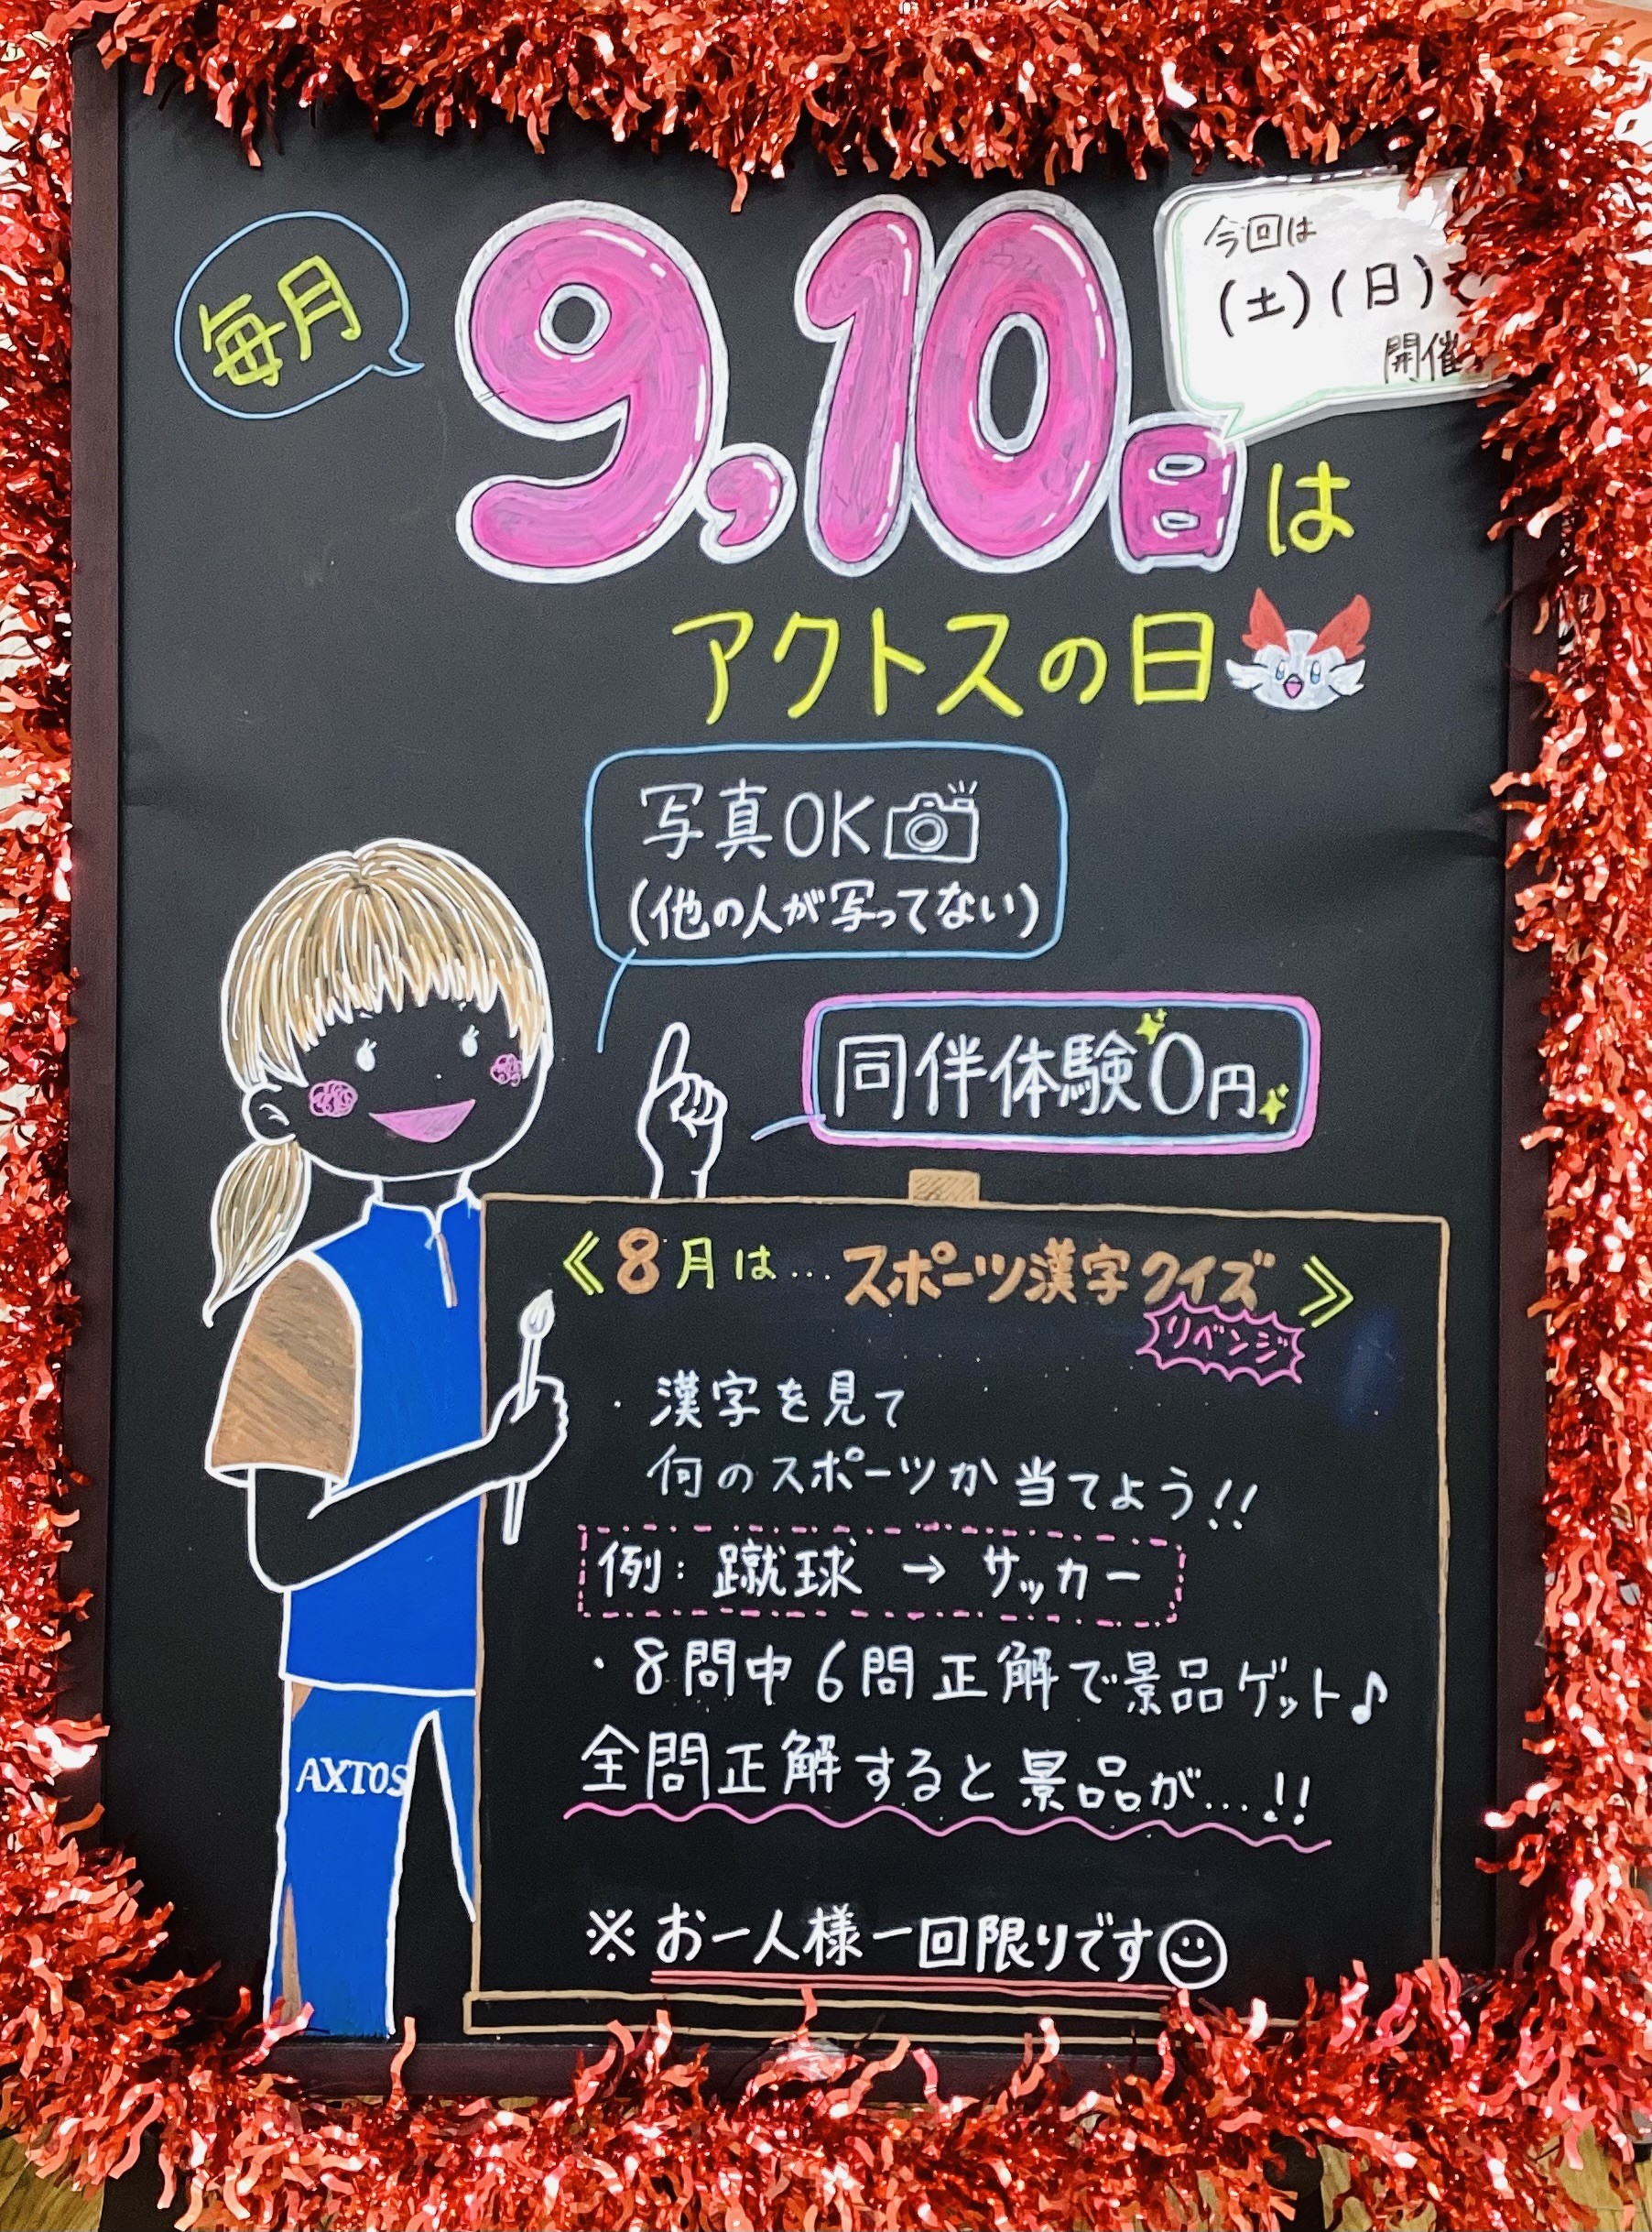 毎月
9,10日は
今回は
(土)(日)
開催
アクトスの日
写真OK
(他の人が写ってない)
同伴体験0円
《8月は…スポーツ漢字クイズ》
リベンジ
・漢字を見て
何のスポーツか当てよう!!
例:蹴球→サッカー
・8問中6問正解で景品ゲット♪
全問正解すると景品が…!!
AXTOS
※お一人様一回限りです